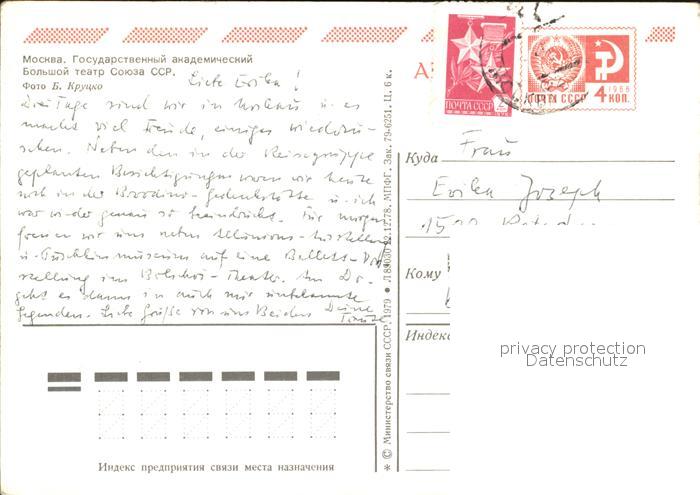 Москва. Государственный академический
Большой театр Союза ССР.
Фото Б. Круцко
Liebe Erika!
Drei Tage sind wir in Moskau u. es
macht viel Freude, einiges wiederzu-
sehen. Neben den in der Reisegruppe
geplanten Besichtigungen waren wir heute
noch in der Borodino-Gedenkstätte u. ich
war wieder genau so beeindruckt. Für morgen
freuen wir uns neben Allunions-Ausstellung
u. Puschkinmuseum auf eine Ballett-Vor-
stellung im Bolschoi-Theater. Am Do.
geht es dann in auch mir unbekannte
Gegenden. Liebe Grüße von uns Beiden Deine
ПОЧТА СССР
ПОЧТА СССР
1966
4 КОП.
Куда
Frau
Erika Joseph
Кому
Индекс
Л 89030 22.12.78. МПФГ. Зак. 79-6251. Ц. 6 к.
* © Министерство связи СССР. 1979
privacy protection
Datenschutz
Индекс предприятия связи места назначения